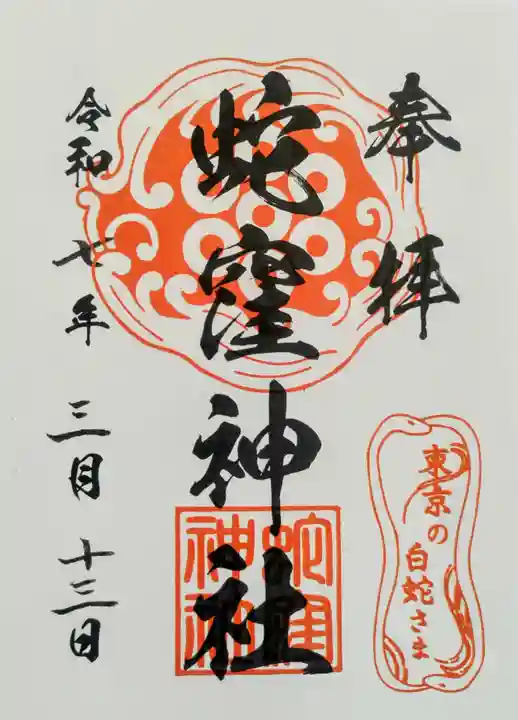 奉拝
蛇窪神社
蛇窪
神社
東京の
白蛇さま
令和七年三月十三日